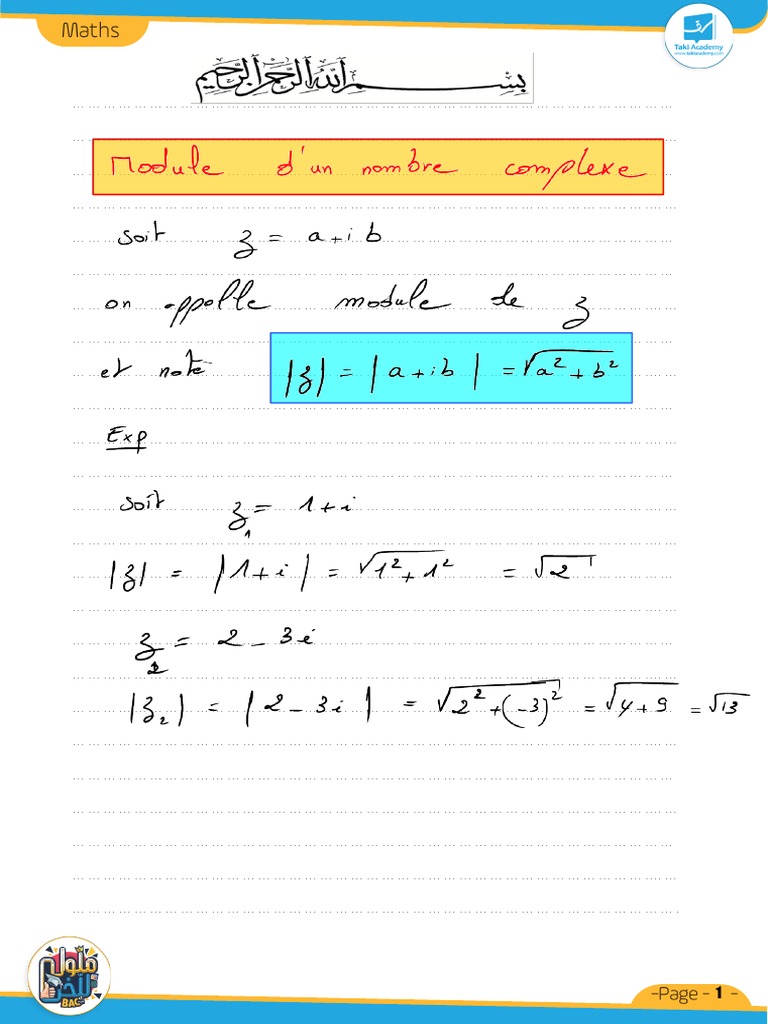 Maths
TakI Academy
www.takiacademy.com
بسم الله الرحمن الرحيم
Module d'un nombre complexe
soit z = a + i b
on appelle module de z
et note |z| = |a + ib| = √(a² + b²)
Exp
soit z₁ = 1 + i
|z| = |1 + i| = √(1² + 1²) = √2
z₂ = 2 - 3i
|z₂| = |2 - 3i| = √(2² + (-3)²) = √(4 + 9) = √13
BAC
-Page - 1 -